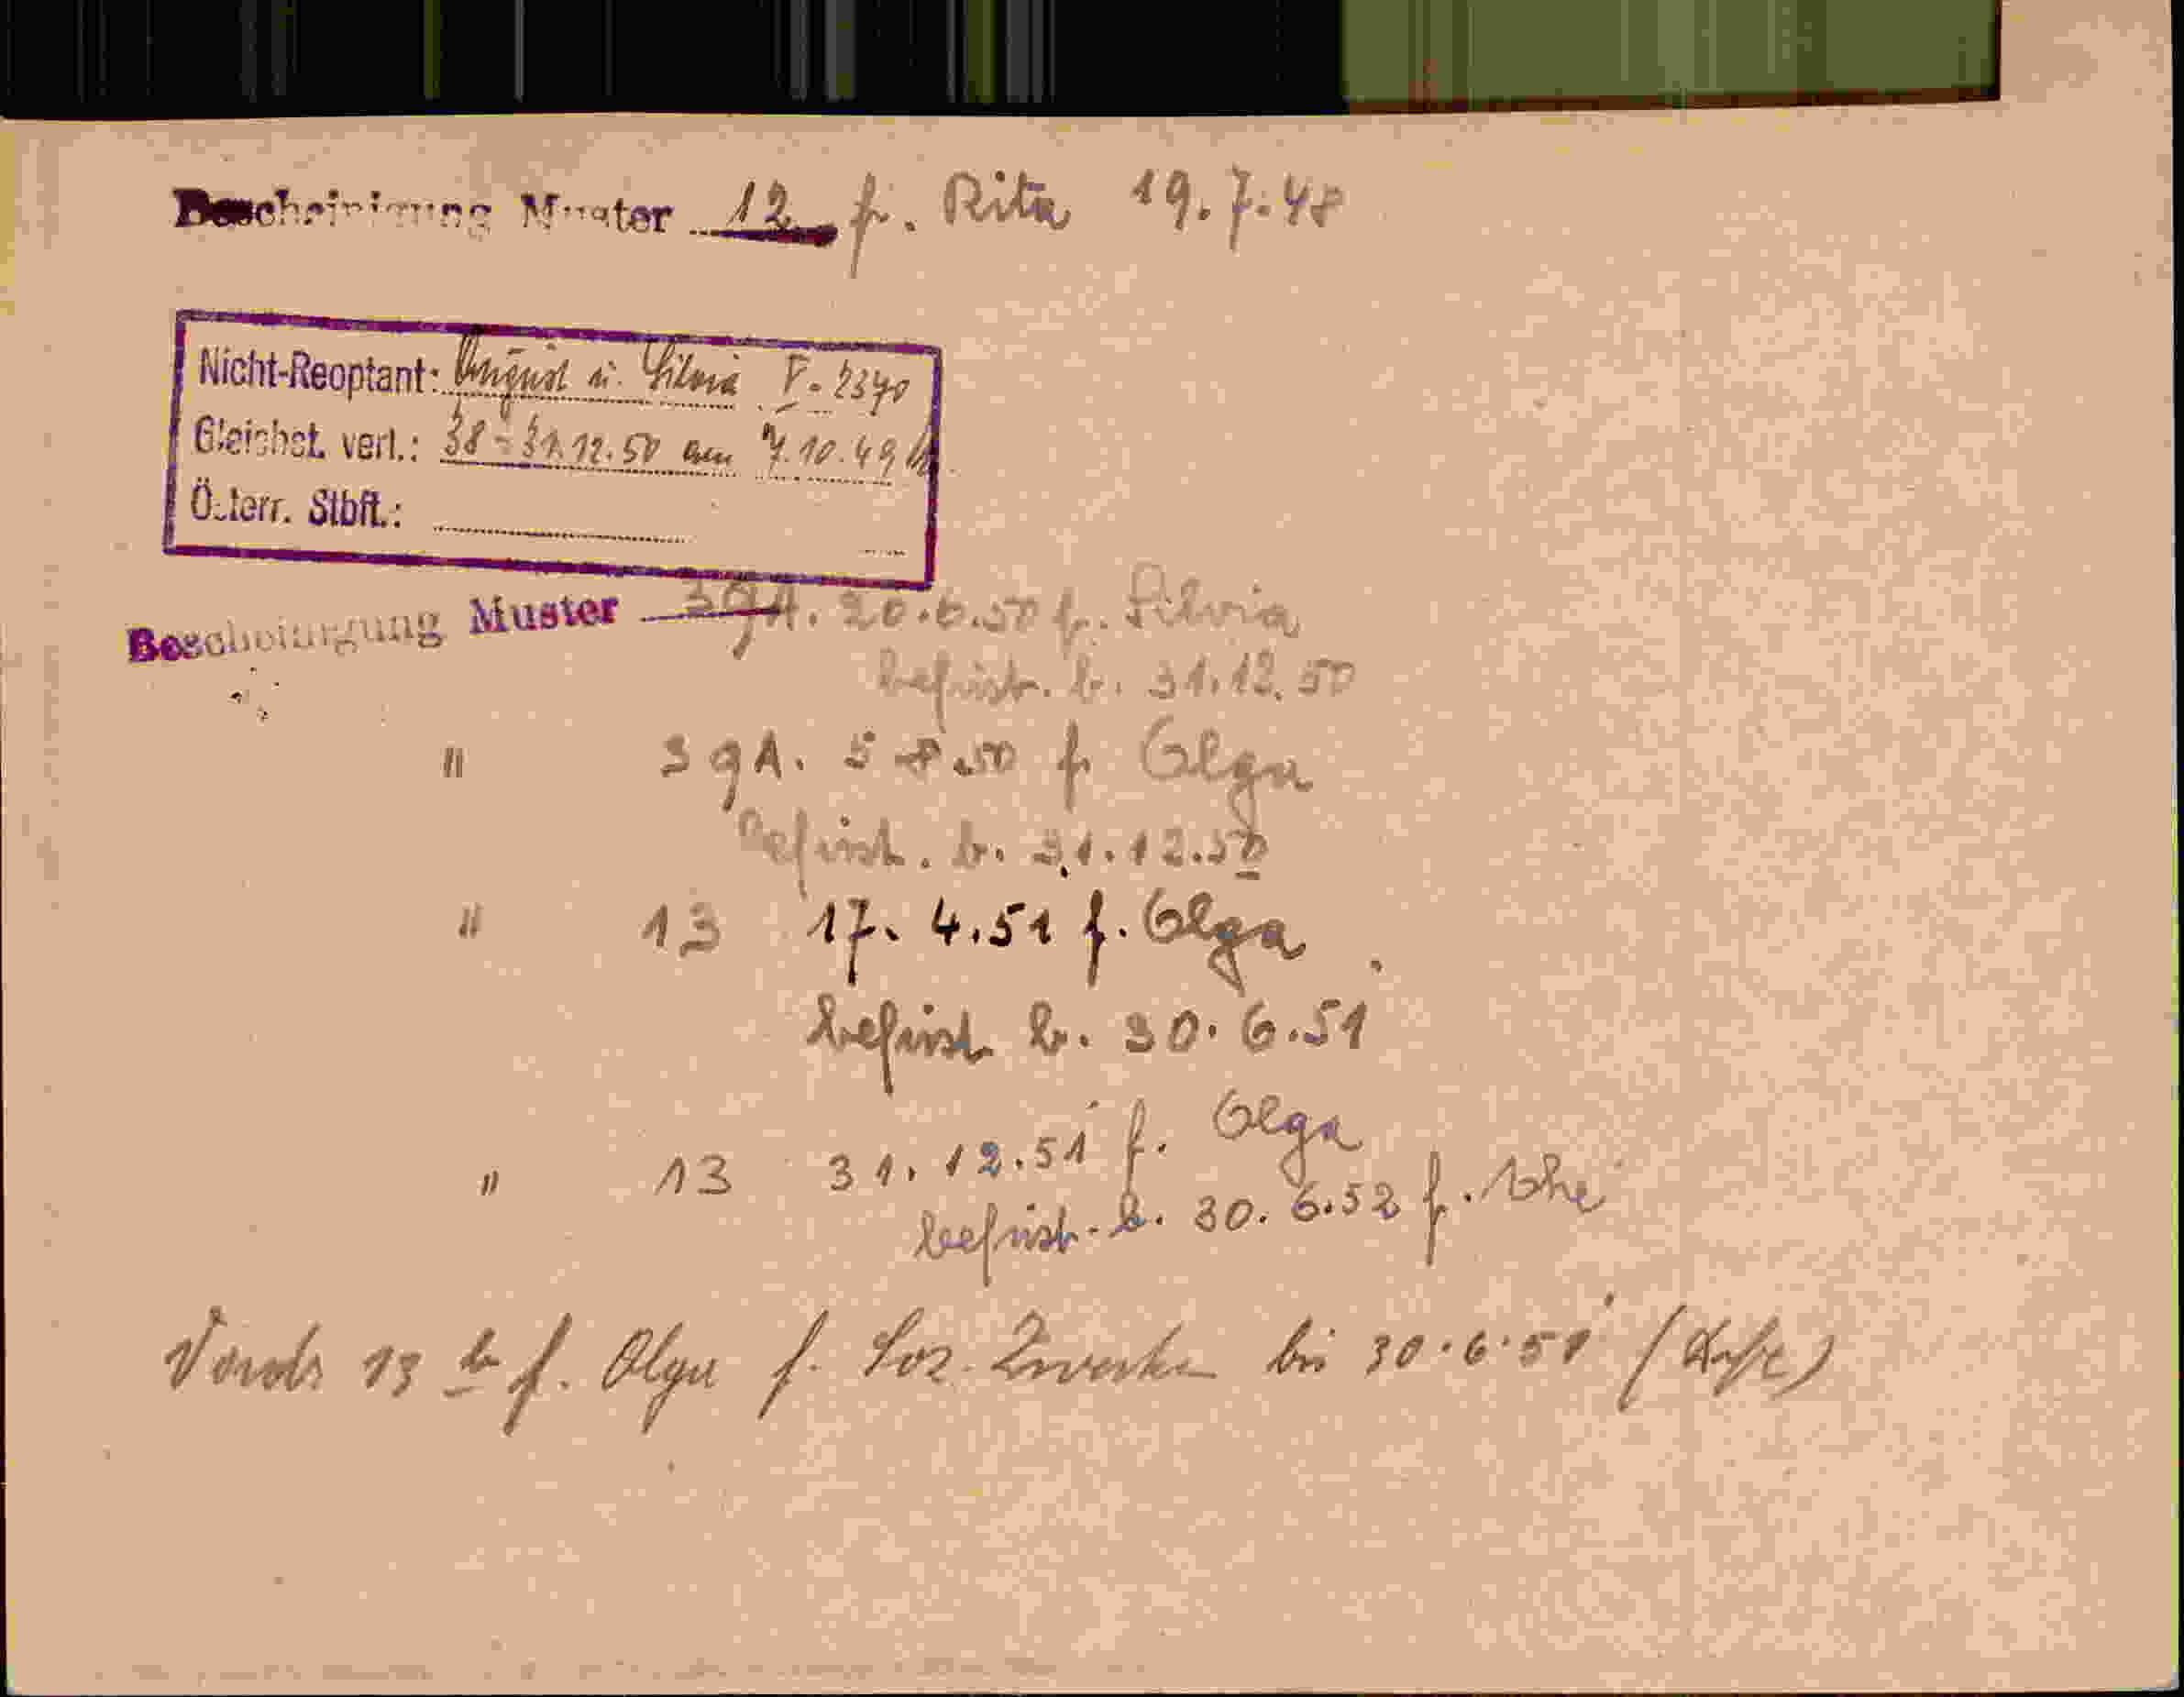 Bescheinigung Muster 12 f. Rita 19.7.48
Nicht-Reoptant: August u. Silvia V-2370
Gleichst. verl.: 38 - 31.12.50 am 7.10.49
Österr. Stbft.:
Bescheinigung Muster 39A. 20.6.50 f. Silvia
befrist. b. 31.12.50
" 39A. 5 8.50 f Olga
befrist. b. 31.12.50
" 13 17. 4.51 f. Olga
befrist b. 30.6.51
" 13 31.12.51 f. Olga
befrist. b. 30.6.52 f.
13 b f. Olga f. Soz. Zwecke bis 30.6.51